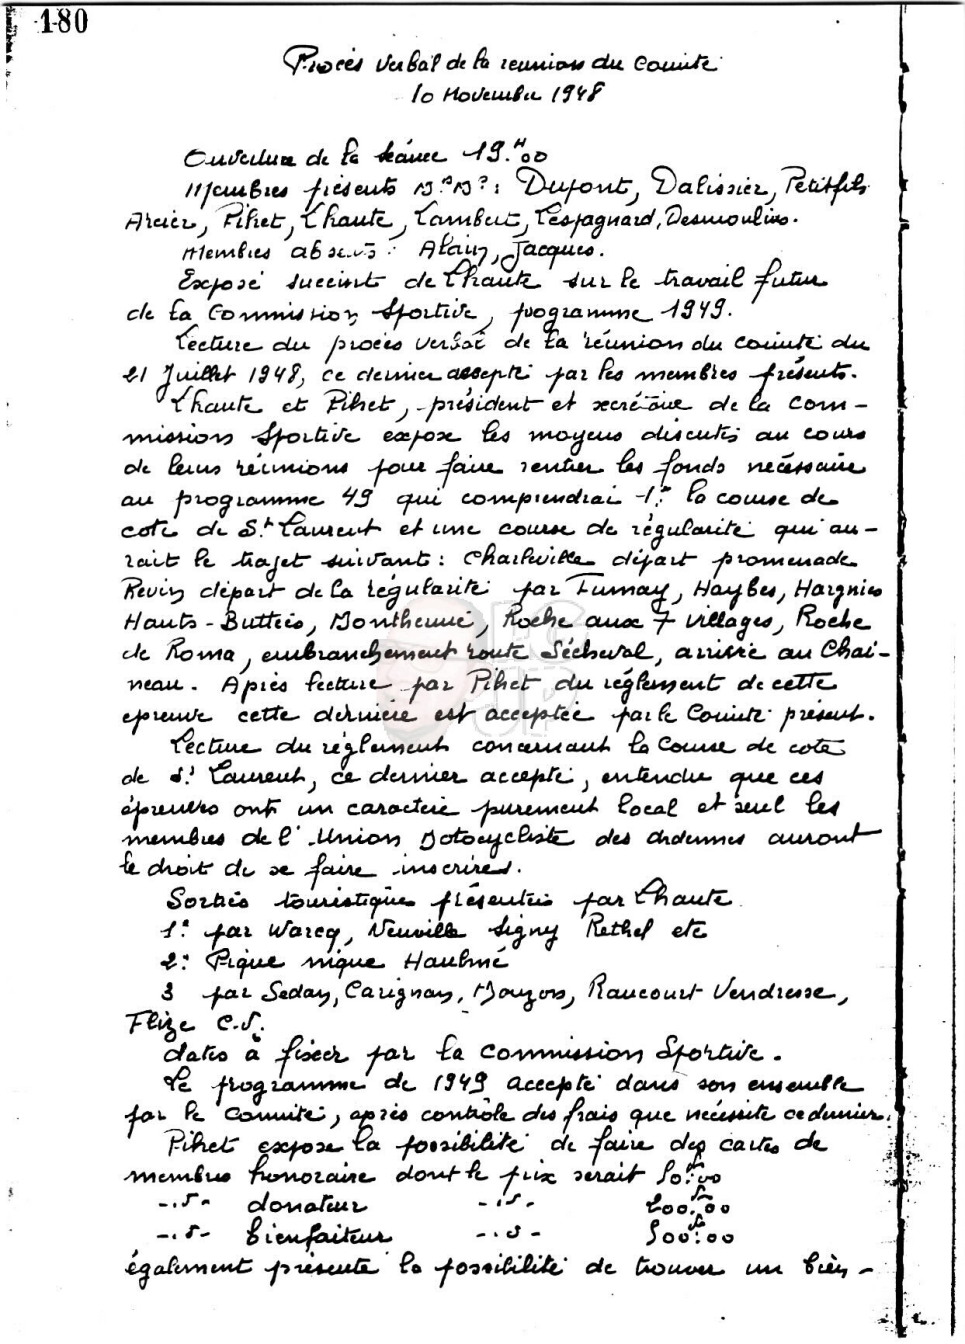 180
Procès verbal de la reunion du Comité
10 Novembre 1948
Ouverture de la séance 19.H00
Membres présents : Dupont, Dalissier, Petitfils
Arcier, Pihet, Lhaute, Lambert, Lespagnard, Desmoulins.
Membres absents : Alain, Jacques.
Exposé succint de Lhaute sur le travail futur
de la Commission Sportive, programme 1949.
Lecture du procès verbal de la réunion du comité du
21 Juillet 1948, ce dernier accepté par les membres présents.
Lhaute et Pihet, président et secrétaire de la Com-
mission Sportive expose les moyens discutés au cours
de leurs réunions pour faire rentrer les fonds nécessaire
au programme 49 qui comprendrai 1.° la course de
cote de St Laurent et une course de régularité qui au-
rait le trajet suivant : Charleville départ promenade
Revin départ de la régularité par Fumay, Haybes, Hargnies
Hauts-Buttés, Monthermé, Roche aux 7 villages, Roche
de Roma, embranchement route Sécheval, arrivée au Chai-
neau. Après lecture par Pihet du réglement de cette
epreuve cette dernière est acceptée par le Comité présent.
Lecture du réglement concernant la Course de cote
de St Laurent, ce dernier accepté, entendu que ces
épreuves ont un caractère purement local et seul les
membres de l'Union Motocycliste des Ardennes auront
le droit de se faire inscrires.
Sorties touristique présentées par Lhaute
1.° par Warcq, Neuville Signy Rethel etc
2.° Pique nique Haulmé
3 par Sedan, Carignan, Mouzon, Raucourt Vendresse,
Flize C.V.
dates à fixer par la Commission Sportive.
Le programme de 1949 accepté dans son ensemble
par le Comité, après contrôle des frais que nécessite ce dernier.
Pihet expose la possibilité de faire des cartes de
membres honoraire dont le prix serait 50.fr00
-.s- donateur -.s- 200.fr00
-.s- bienfaiteur -.s- 500.fr00
également présente la possibilité de trouver un bien-